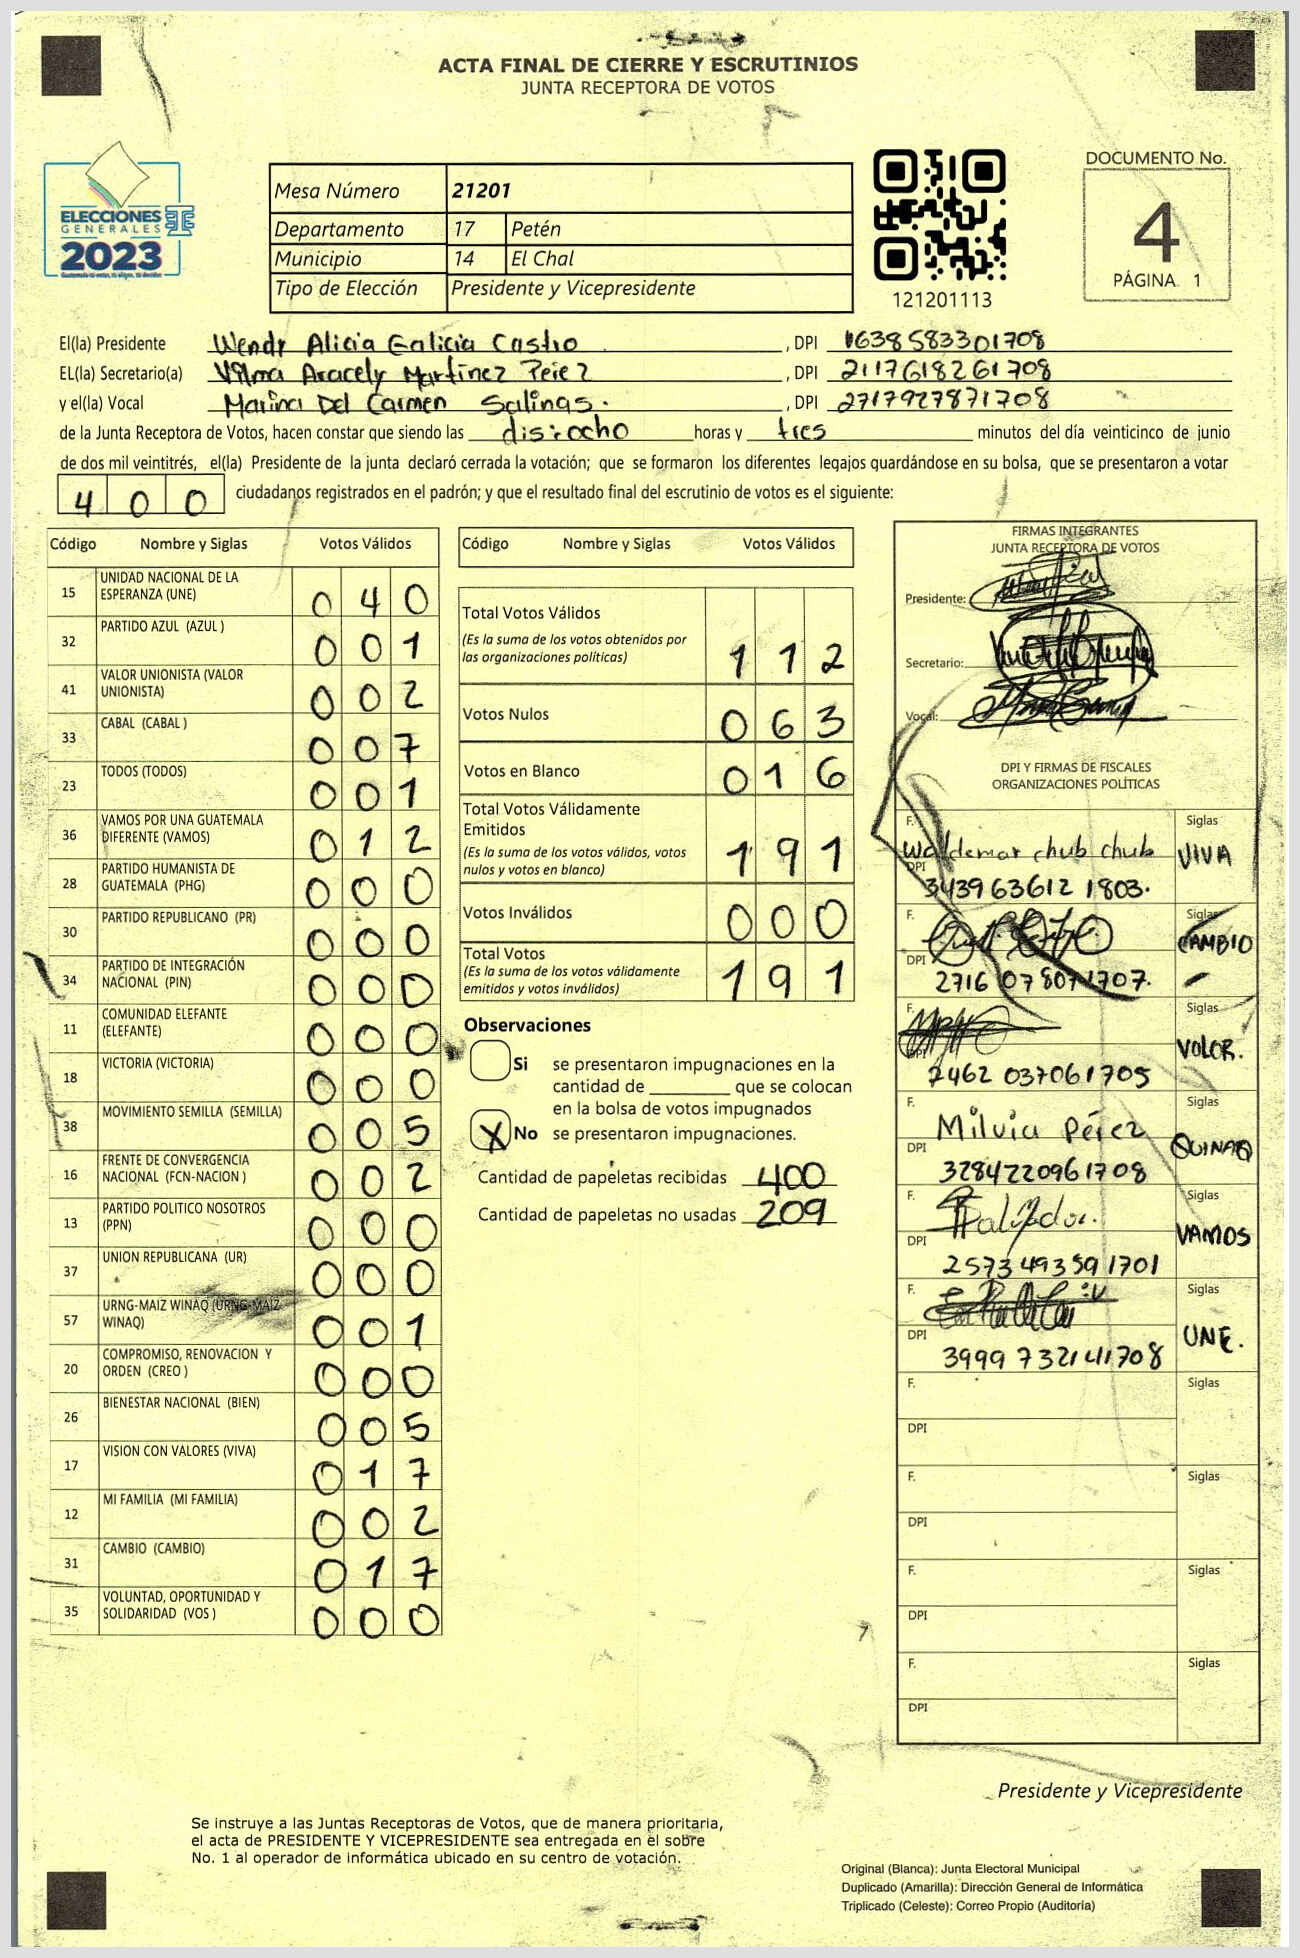 ACTA FINAL DE CIERRE Y ESCRUTINIOS
JUNTA RECEPTORA DE VOTOS
ELECCIONES
GENERALES
2023
Mesa Número 21201
Departamento 17 Petén
Municipio 14 El Chal
Tipo de Elección Presidente y Vicepresidente
121201113
DOCUMENTO No.
4
PÁGINA 1
El(la) Presidente Wendy Alicia Galicia Castro, DPI 1638583301708
EL(la) Secretario(a) Vilma Aracely Martinez Perez, DPI 2117618261708
y el(la) Vocal Marina Del Carmen Salinas., DPI 2717927871708
de la Junta Receptora de Votos, hacen constar que siendo las disiocho horas y tres minutos del día veinticinco de junio
de dos mil veintitrés, el(la) Presidente de la junta declaró cerrada la votación; que se formaron los diferentes legajos guardándose en su bolsa, que se presentaron a votar
400 ciudadanos registrados en el padrón; y que el resultado final del escrutinio de votos es el siguiente:
Código Nombre y Siglas Votos Válidos
15 UNIDAD NACIONAL DE LA ESPERANZA (UNE) 040
32 PARTIDO AZUL (AZUL ) 001
41 VALOR UNIONISTA (VALOR UNIONISTA) 002
33 CABAL (CABAL ) 007
23 TODOS (TODOS) 001
36 VAMOS POR UNA GUATEMALA DIFERENTE (VAMOS) 012
28 PARTIDO HUMANISTA DE GUATEMALA (PHG) 000
30 PARTIDO REPUBLICANO (PR) 000
34 PARTIDO DE INTEGRACIÓN NACIONAL (PIN) 000
11 COMUNIDAD ELEFANTE (ELEFANTE) 000
18 VICTORIA (VICTORIA) 000
38 MOVIMIENTO SEMILLA (SEMILLA) 005
16 FRENTE DE CONVERGENCIA NACIONAL (FCN-NACION ) 002
13 PARTIDO POLITICO NOSOTROS (PPN) 000
37 UNION REPUBLICANA (UR) 000
57 URNG-MAIZ WINAQ (URNG-MAIZ WINAQ) 001
20 COMPROMISO, RENOVACION Y ORDEN (CREO ) 000
26 BIENESTAR NACIONAL (BIEN) 005
17 VISION CON VALORES (VIVA) 017
12 MI FAMILIA (MI FAMILIA) 002
31 CAMBIO (CAMBIO) 017
35 VOLUNTAD, OPORTUNIDAD Y SOLIDARIDAD (VOS ) 000
Código Nombre y Siglas Votos Válidos
Total Votos Válidos
(Es la suma de los votos obtenidos por
las organizaciones políticas) 112
Votos Nulos 063
Votos en Blanco 016
Total Votos Válidamente
Emitidos
(Es la suma de los votos válidos, votos
nulos y votos en blanco) 191
Votos Inválidos 000
Total Votos
(Es la suma de los votos válidamente
emitidos y votos inválidos) 191
Observaciones
Si se presentaron impugnaciones en la
cantidad de ________ que se colocan
en la bolsa de votos impugnados
X No se presentaron impugnaciones.
Cantidad de papeletas recibidas 400
Cantidad de papeletas no usadas 209
FIRMAS INTEGRANTES
JUNTA RECEPTORA DE VOTOS
Presidente:
Secretario:
Vocal:
DPI Y FIRMAS DE FISCALES
ORGANIZACIONES POLÍTICAS
F. Waldemar chub chub Siglas VIVA
DPI 3439636121803.
F. Siglas CAMBIO
DPI 2716078071707.
F. Siglas VOLOR.
DPI 7462037061705
F. Milvia Pérez Siglas QUINAQ
DPI 3284220961708
F. Siglas VAMOS
DPI 2573493591701
F. Siglas UNE.
DPI 3999732141708
F. Siglas
DPI
F. Siglas
DPI
F. Siglas
DPI
F. Siglas
DPI
Presidente y Vicepresidente
Se instruye a las Juntas Receptoras de Votos, que de manera prioritaria,
el acta de PRESIDENTE Y VICEPRESIDENTE sea entregada en el sobre
No. 1 al operador de informática ubicado en su centro de votación.
Original (Blanca): Junta Electoral Municipal
Duplicado (Amarilla): Dirección General de Informática
Triplicado (Celeste): Correo Propio (Auditoría)